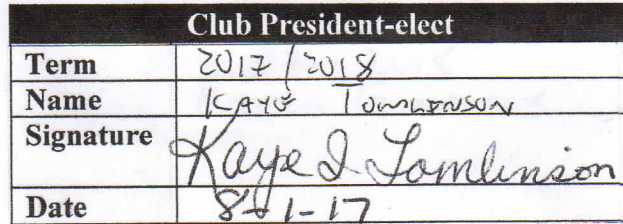 Club President-elect
Term 2017/2018
Name KAYE TOMLINSON
Signature Kaye I Tomlinson
Date 8-1-17